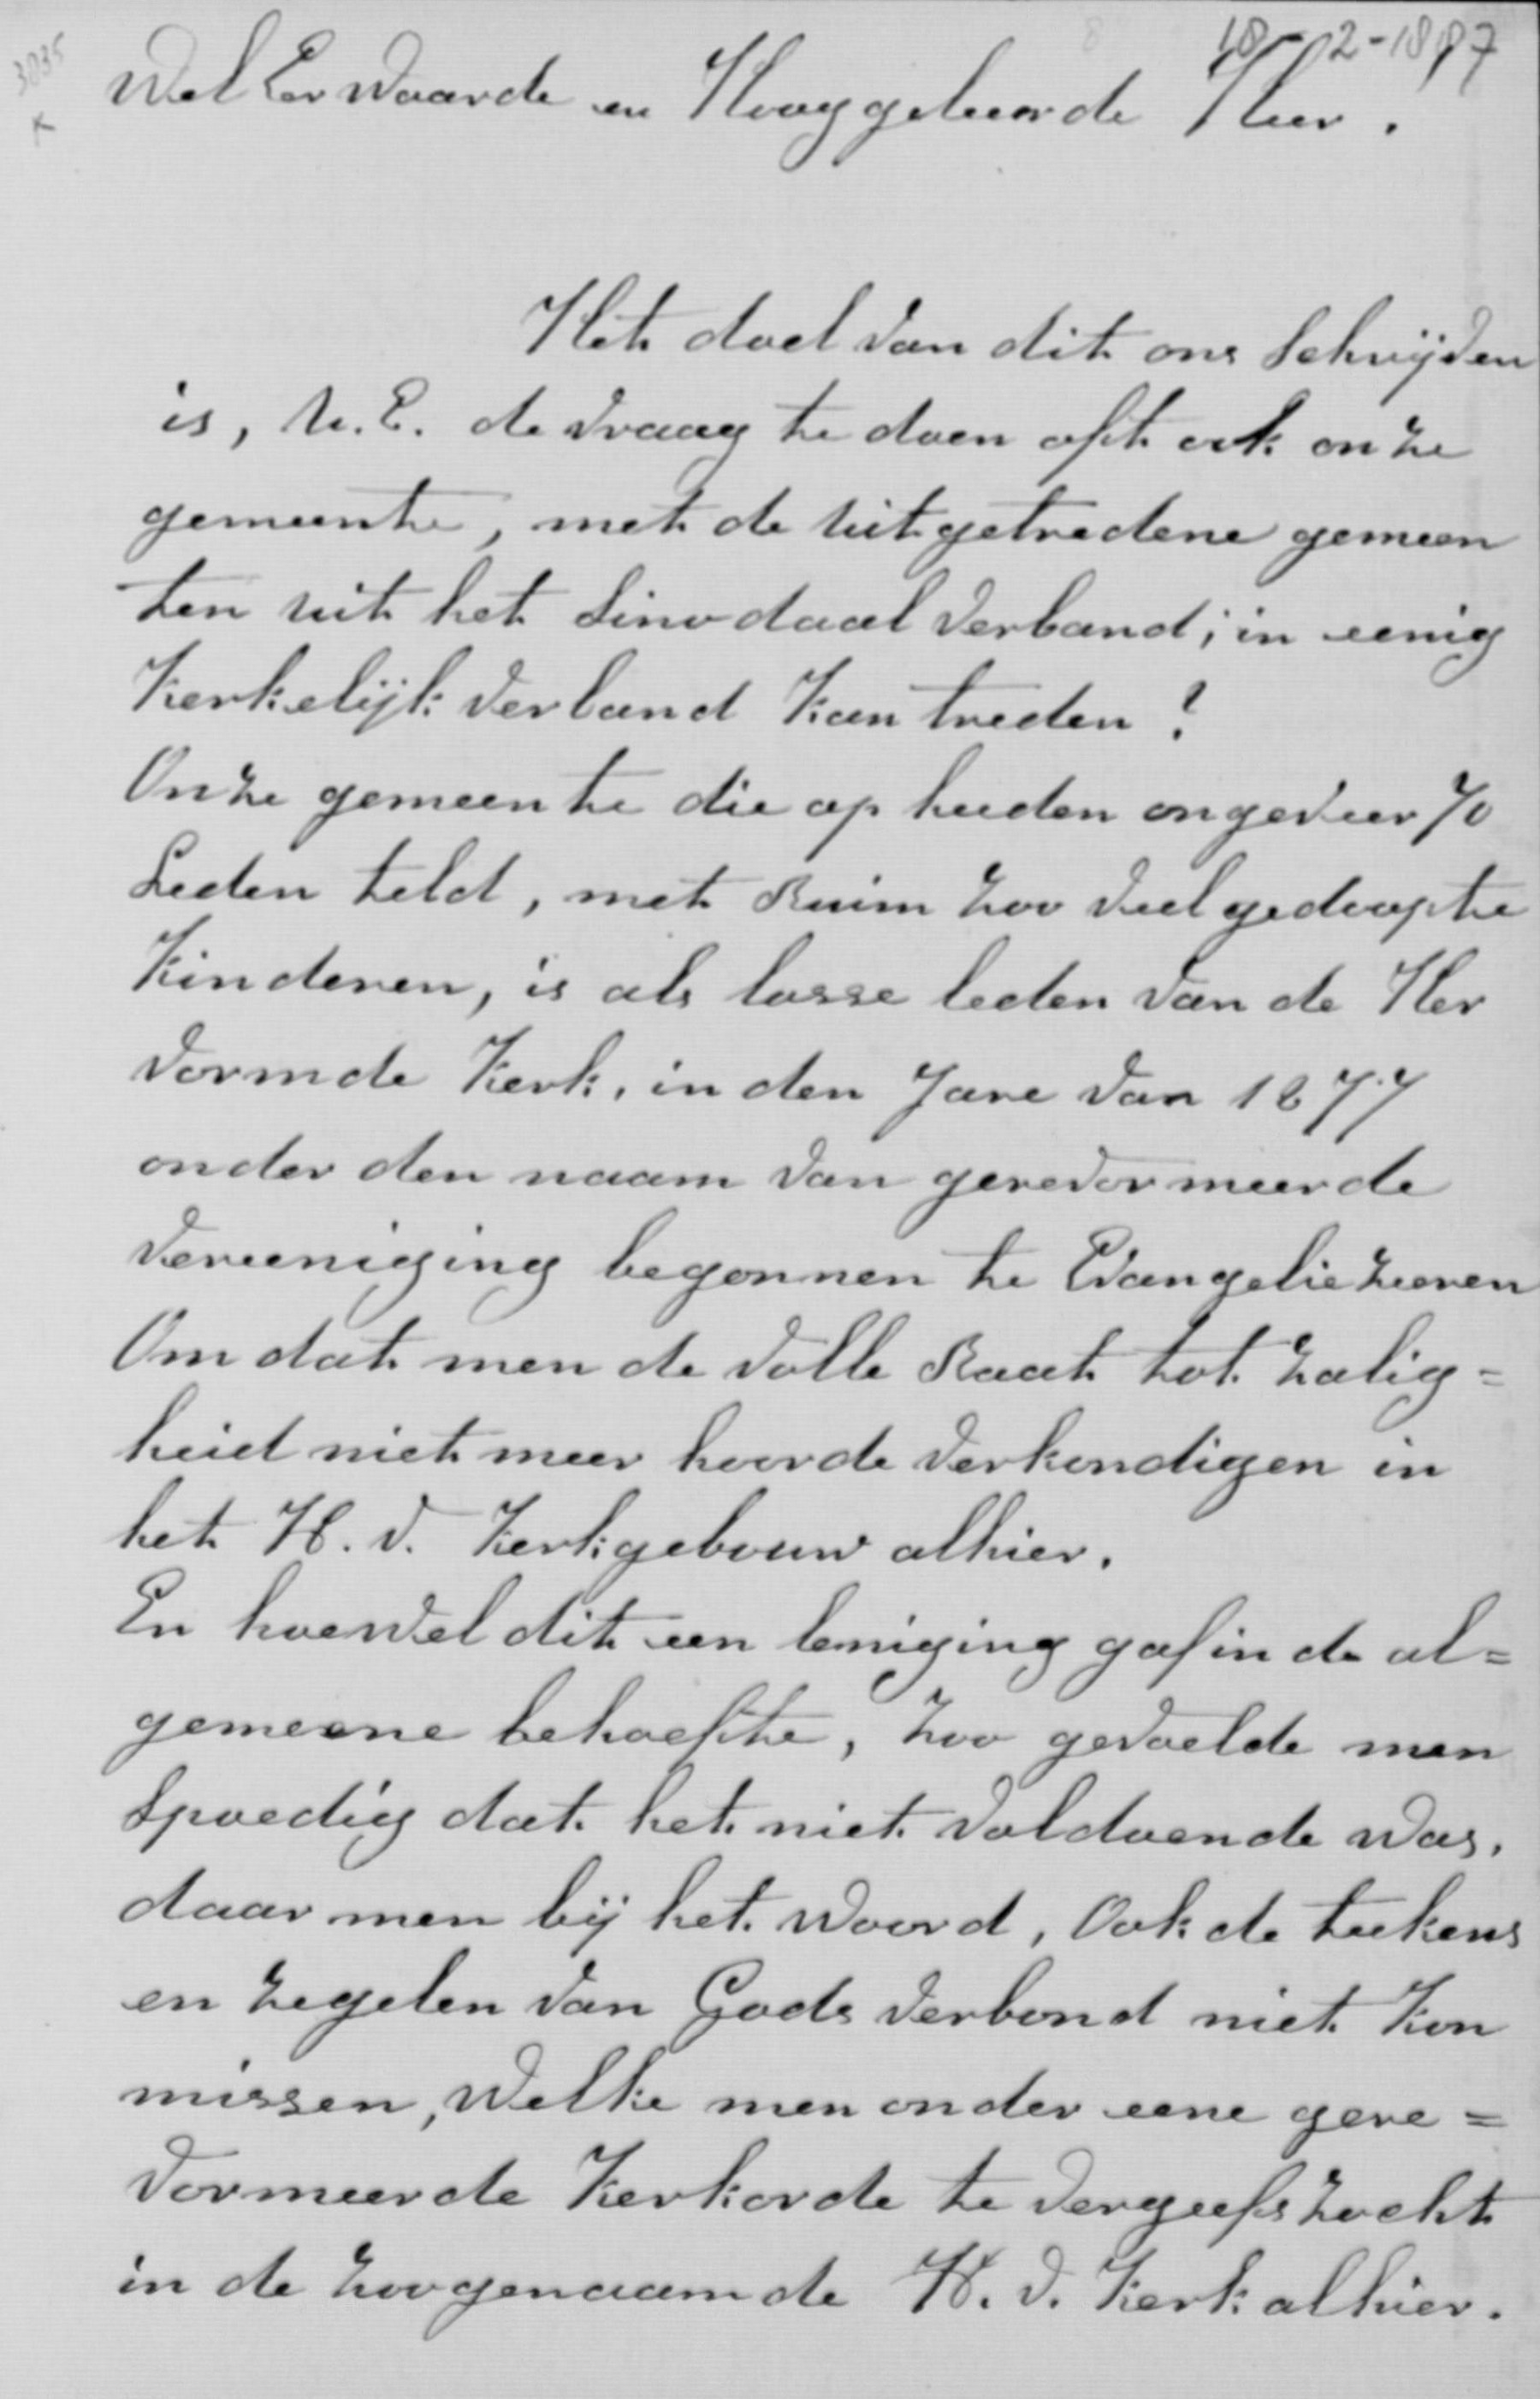 18-12-1887
3035
K
Wel Eer Waarde en Hooggeleerde Heer.
Het doel van dit ons Schrijven
is, U.E. de vraag te doen oft ook onze
gemeente, met de uitgetredene gemeen
ten uit het Sinodaal verband; in eenig
Kerkelijk verband kan treden?
Onze gemeente die op heeden ongeveer 70
Leden teld, met Ruim zoo veel gedoopte
Kinderen, is als losse leden van de Her
vormde Kerk, in den Jare van 1877
onder den naam van gerevormeerde
vereeniging begonnen te Evangeliezeeren
Om dat men de volle Raat tot zalig=
heid niet meer hoorde verkondigen in
het H.v. Kerkgebouw alhier.
En hoewel dit een leniging gaf in de al=
gemeene behoefte, zoo gevoelde men
Spoedig dat het niet voldoende was,
daar men bij het woord, Ook de teekens
en zegelen van Gods verbond niet kon
missen, welke men onder eene gere=
vormeerde Kerkorde te vergeefs zocht
in de zoogenaamde H.v. Kerk alhier.